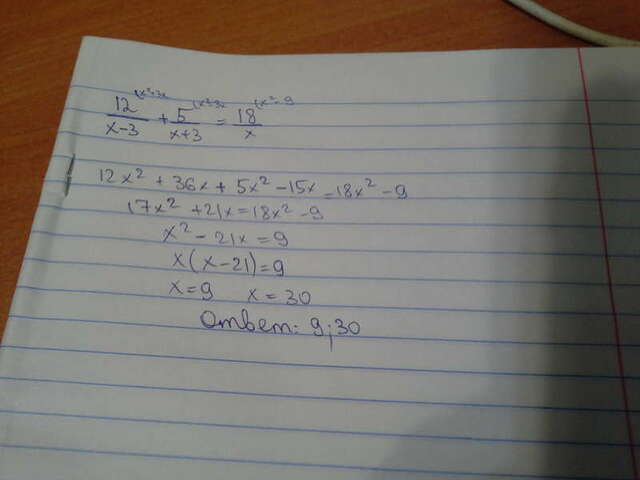 12/(x-3) (x²+3x + 5/(x+3) (x²-3x = 18/x (x²-9
12x² + 36x + 5x² - 15x = 18x² - 9
17x² + 21x = 18x² - 9
x² - 21x = 9
x(x-21)=9
x=9 x=30
Ответ: 9;30